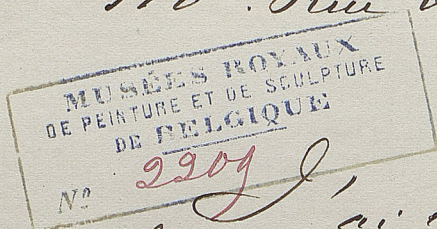 MUSÉES ROYAUX
DE PEINTURE ET DE SCULPTURE
DE BELGIQUE
Nº 2209